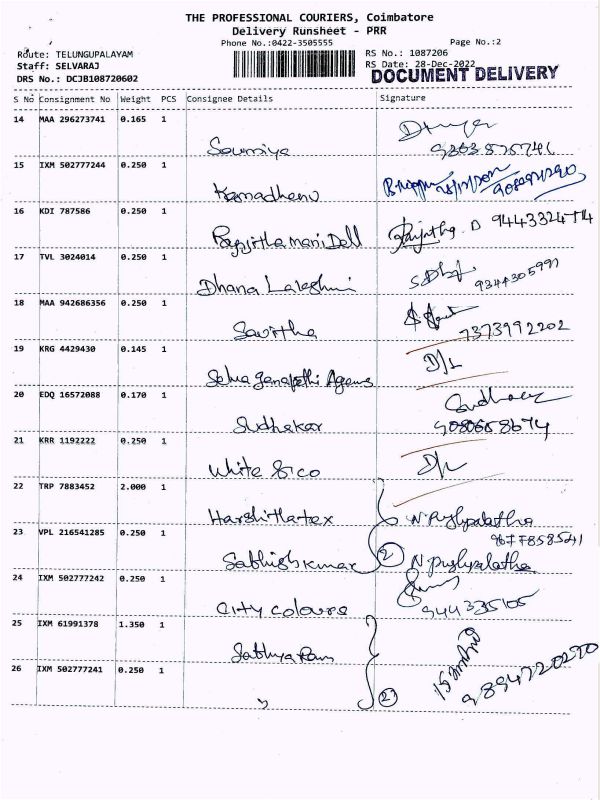 THE PROFESSIONAL COURIERS, Coimbatore
Delivery Runsheet - PRR
Phone No.:0422-3505555
Page No.:2
Route: TELUNGUPALAYAM
RS No.: 1087206
Staff: SELVARAJ
RS Date: 28-Dec-2022
DRS No.: DCJB108720602
DOCUMENT DELIVERY
S No Consignment No Weight PCS Consignee Details Signature
14 MAA 296273741 0.165 1
Soumiya
15 IXM 502777244 0.250 1
Kamadhenu
16 KDI 787586 0.250 1
9443324774
17 TVL 3024014 0.250 1
Dhana Lakshmi
9344305991
18 MAA 942686356 0.250 1
Savitha 7373992202
19 KRG 4429430 0.145 1
D/L
Selva ganapathi Agens
20 EDQ 16572088 0.170 1
Sudhakar 9080658674
21 KRR 1192222 0.250 1
White & co D/L
22 TRP 7883452 2.000 1
Harshitha tex N.Pushpalatha
23 VPL 216541285 0.250 1
9677858541
Sathishkumar 2 N.Pushpalatha
24 IXM 502777242 0.250 1
City colours
25 IXM 61991378 1.350 1
Sathya Ram
26 IXM 502777241 0.250 1
2 9894720290